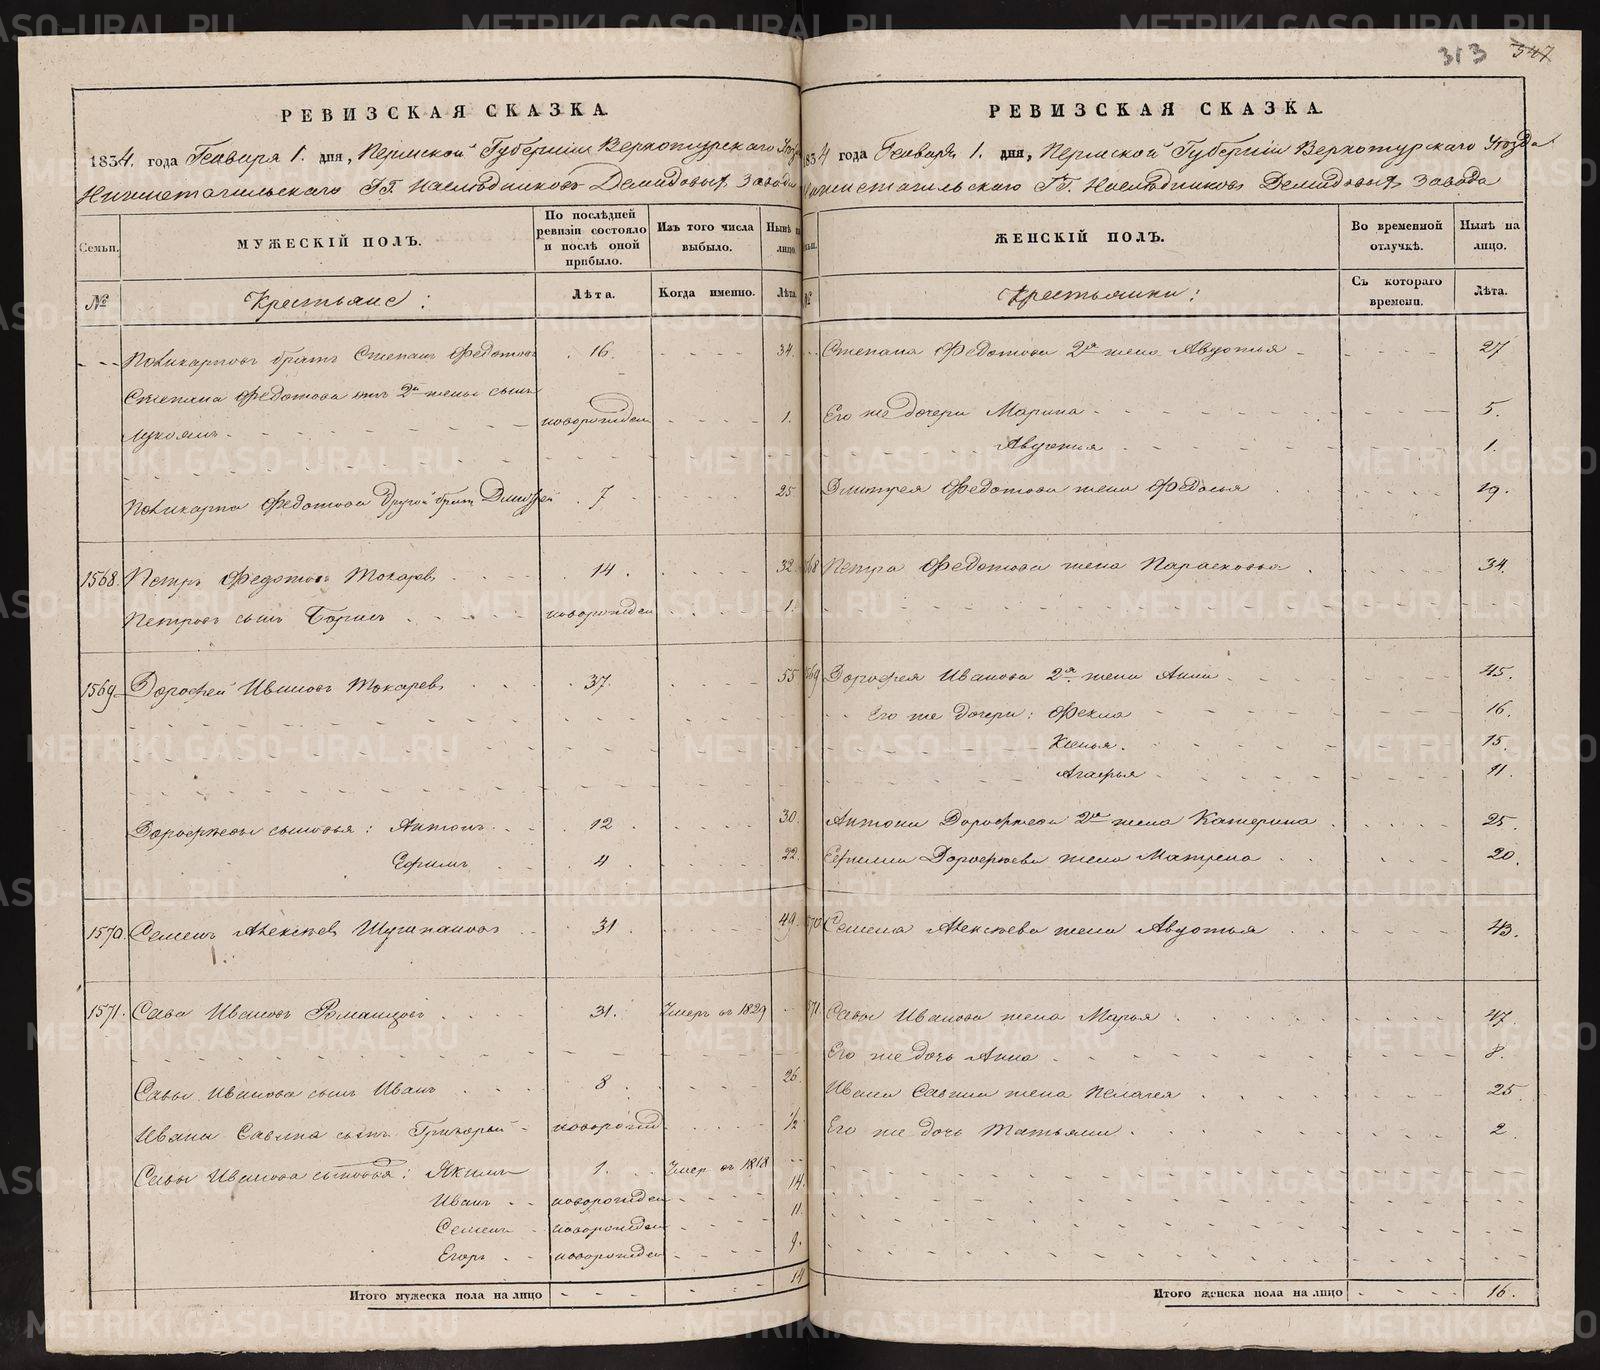 313 547
РЕВИЗСКАЯ СКАЗКА.
1834 года Генваря 1. дня, Пермской Губернии Верхотурского Уезда
Нижнетагильского ГГ. Наследниковъ Демидовыхъ Завода
Семьи. МУЖЕСКІЙ ПОЛЪ. По послѣдней ревизіи состояло и послѣ оной прибыло. Изъ того числа выбыло. Нынѣ на лицо.
№ Крестьяне: Лѣта. Когда именно. Лѣта.
Поликарповъ братъ Степанъ Федотовъ 16. 34.
Степана Федотова отъ 2й жены сынъ
Лукоянъ новорожден 1.
Поликарпа Федотова другой братъ Дмитрей 7 25
1568. Петръ Федотовъ Токаревъ 14. 32
Петровъ сынъ Борисъ новорожден 1.
1569. Дорофей Ивановъ Токаревъ 37. 55
Дорофеевы сыновья: Антонъ 12 30.
Ефимъ 4 22.
1570. Семенъ Алексѣевъ 31. 49.
1571. Сава Ивановъ Романцовъ 31. Умеръ въ 1829
Савы Иванова сынъ Иванъ 8 26.
Ивана Савина сынъ Григорей новорожд ½
Савы Иванова сыновья: Якимъ 1. Умер въ 1818
Иванъ новорожден 14.
Семенъ новорожден 11.
Егоръ новорожден 9.
Итого мужеска пола на лицо 14
РЕВИЗСКАЯ СКАЗКА.
1834 года Генваря 1. дня, Пермской Губернии Верхотурского Уезда
Нижнетагильского ГГ. Наследниковъ Демидовыхъ Завода
ЖЕНСКІЙ ПОЛЪ. Во временной отлучкѣ. Нынѣ на лицо.
№ Крестьянки: Съ котораго времени. Лѣта.
Степана Федотова 2я жена Авдотья 27
Его же дочери Марина 5.
1.
Дмитрея Федотова жена Федосья 19.
1568 Петра Федотова жена Парасковья 34.
1569 Дорофея Иванова 2я жена Анна 45.
Его же дочери: Фекла 16.
Ксенья. 15.
Агафья 11.
Антона Дорофеева 2я жена Катерина 25.
Ефима Дорофеева жена Матрена 20.
1570 Семена Алексѣева жена Авдотья 43.
1571 Савы Иванова жена Марья 47.
Его же дочь Анна 8.
Ивана Савина жена Пелагея 25
Его же дочь Татьяна 2.
Итого женска пола на лицо 16.
METRIKI.GASO-URAL.RU